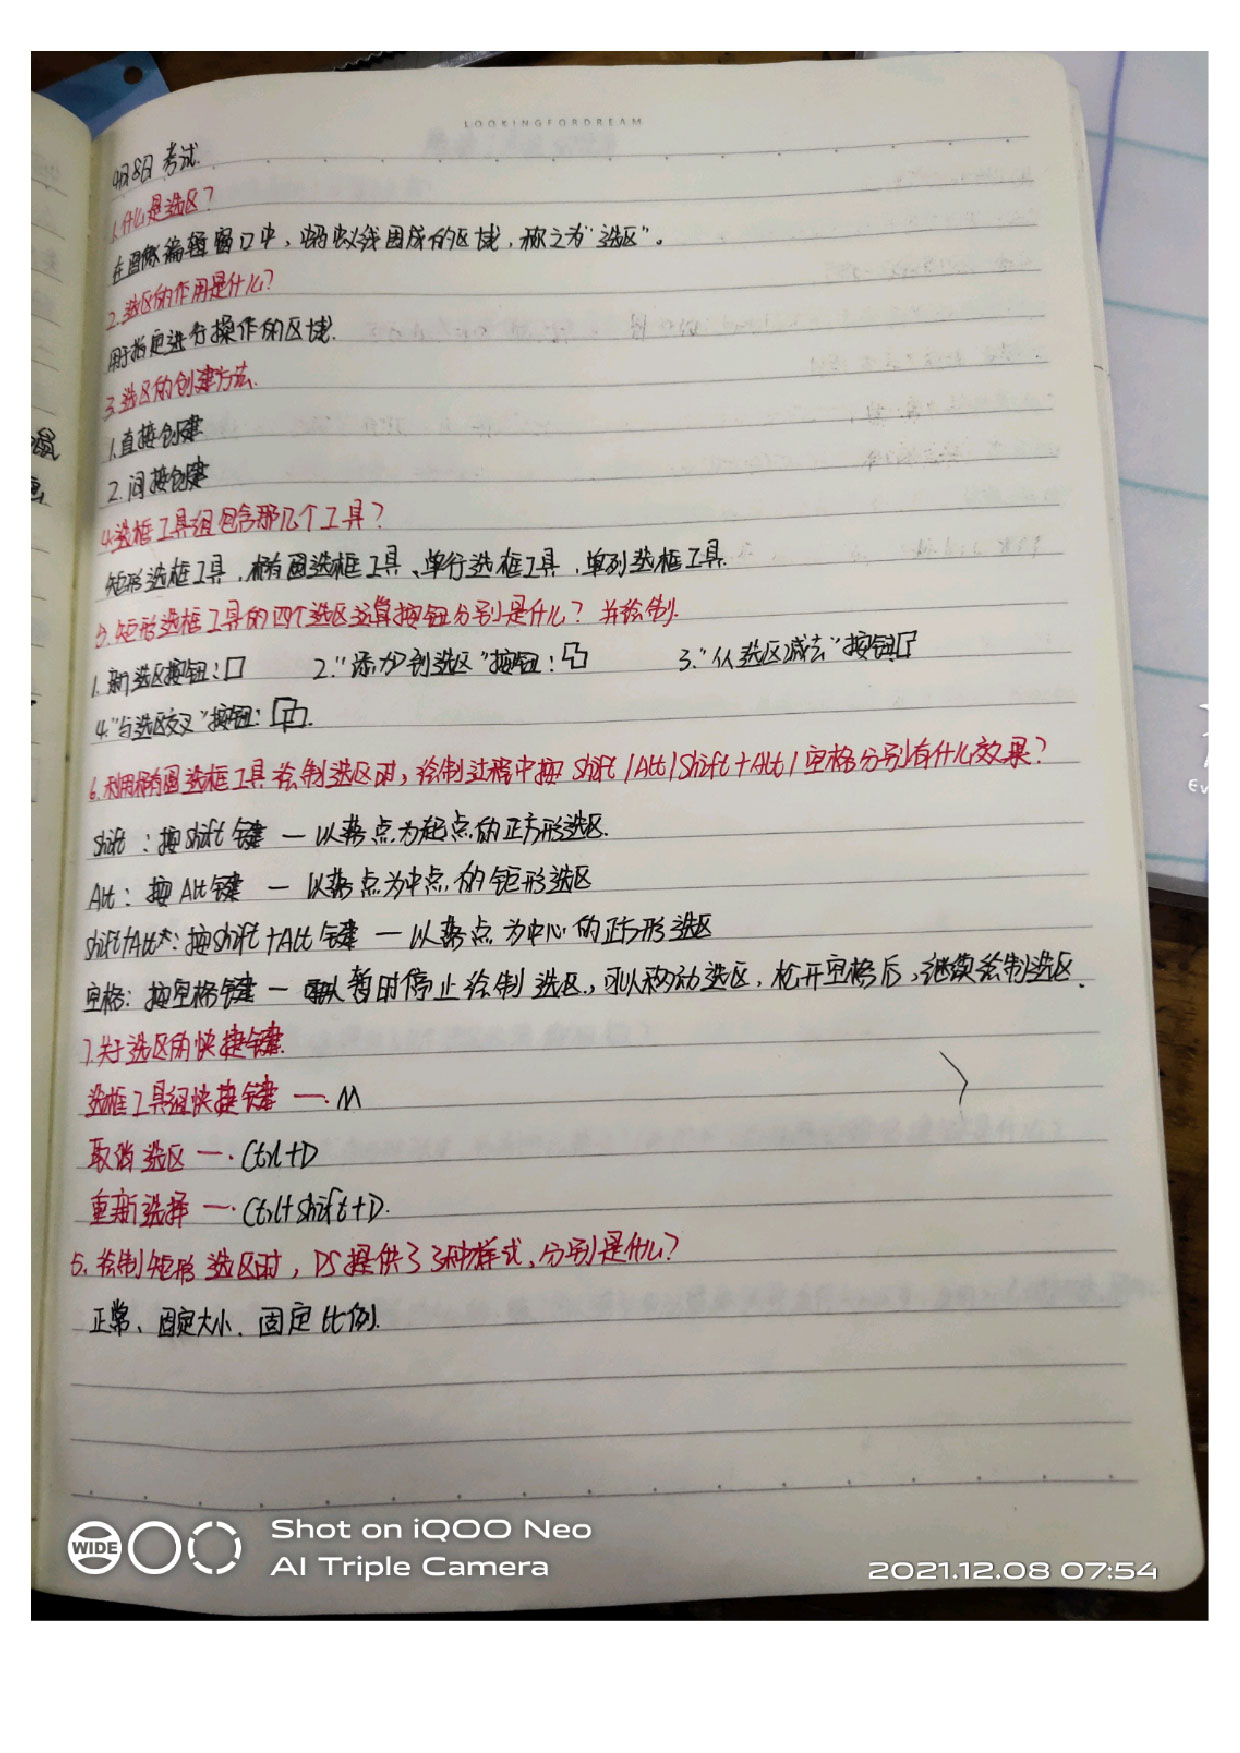 LOOKINGFORDREAM
9月8日 考试.
1.什么是选区?
在图像编辑窗口中,蚂蚁线围成的区域,称之为“选区”。
2.选区的作用是什么?
用于指定进行操作的区域.
3.选区的创建方法.
1.直接创建
2.间接创建
4.选框工具组包含那几个工具?
矩形选框工具、椭圆选框工具、单行选框工具、单列选框工具.
5.矩形选框工具的四个选区运算按钮分别是什么?并绘制.
1.新选区按钮: 2.“添加到选区”按钮: 3.“从选区减去”按钮:
4.“与选区交叉”按钮:
6.利用椭圆选框工具绘制选区时,绘制过程中按 Shift/Alt/Shift+Alt/空格分别有什么效果?
Shift:按Shift键 — 以落点为起点的正方形选区.
Alt:按Alt键 — 以落点为中点的矩形选区
Shift+Alt:按Shift+Alt键 — 以落点为中心的正方形选区
空格:按空格键 — 暂时停止绘制选区,可以移动选区,松开空格后,继续绘制选区.
7.关于选区的快捷键.
选框工具组快捷键 — M
取消选区 — Ctrl+D
重新选择 — Ctrl+Shift+D.
5.绘制矩形选区时,PS提供了3种样式,分别是什么?
正常、固定大小、固定比例.
WIDE
Shot on iQOO Neo
AI Triple Camera
2021.12.08 07:54